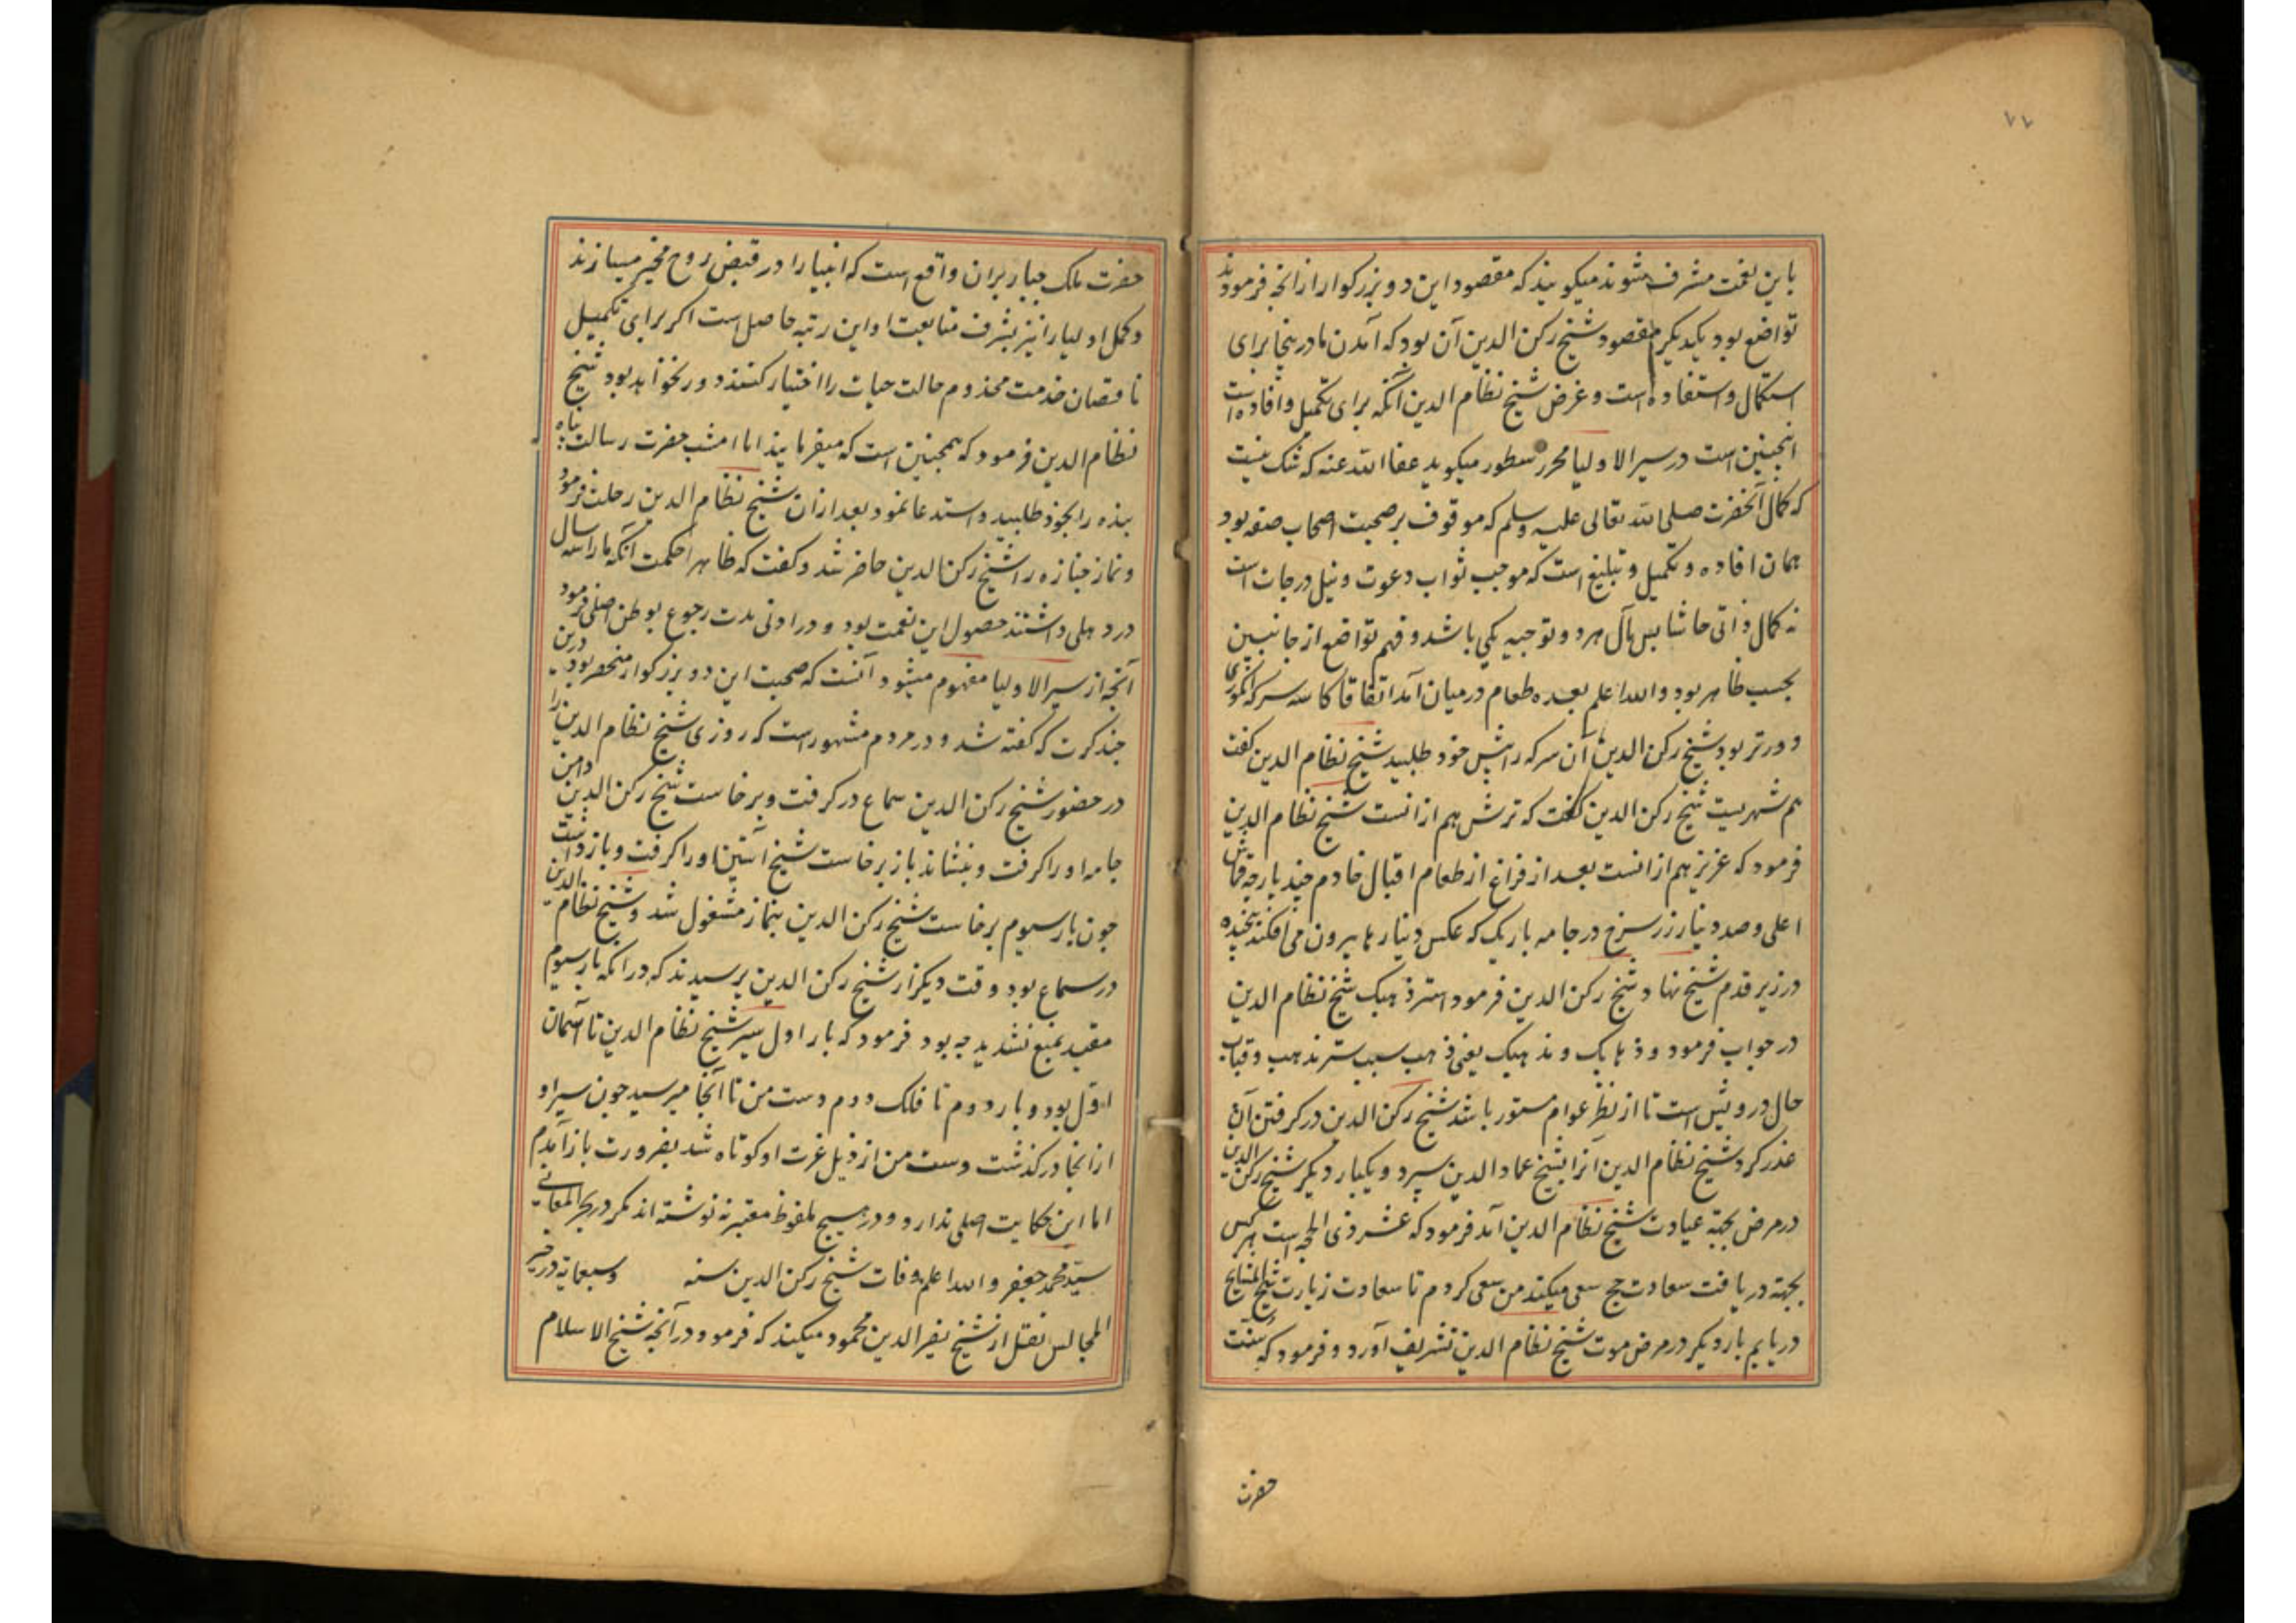 ٧٧
باین نعمت مشرف شوند میکویند که مقصود این دو بزرکوار از انچه فرمودند
تواضع بود یکدیکر مقصود شیخ رکن الدین آن بود که آمدن ما درینجا برای
استکمال و استفاده است و غرض شیخ نظام الدین آنکه برای تکمیل و افاده است
انچنین است در سیر الاولیا محرر سطور میکوید عفا الله عنه که شک نیست
که کمال آنحضرت صلی الله تعالی علیه وسلم که موقوف بر صحبت اصحاب صفه بود
همان افاده و تکمیل و تبلیغ است که موجب ثواب دعوت و نیل درجات است
نه کمال ذاتی حاشا پس مآل هر دو توجیه یکی باشد و فهم تواضع از جانبین
بحسب ظاهر بود والله اعلم بعده طعام درمیان آمد اتفاقا کاسه سرکه انکوری
دورتر بود شیخ رکن الدین آن سرکه را پیش خود طلبید شیخ نظام الدین کفت
هم شهریست شیخ رکن الدین کفت که ترش هم از انست شیخ نظام الدین
فرمود که عزیز هم از انست بعد از فراغ از طعام اقبال خادم چند پارچه قماش
اعلی و صد دینار زر سرخ در جامه باریک که عکس دینارها بیرون می افکند پیچیده
در زیر قدم شیخ نهاد شیخ رکن الدین فرمود استر ذهبک شیخ نظام الدین
در جواب فرمود و ذهابک و مذهبک یعنی ذهب سبب ستر مذهب و قباب
حال درویش است تا از نظر عوام مستور باشد شیخ رکن الدین در کرفتن آن
عذر کرد شیخ نظام الدین آنرا بشیخ عماد الدین سپرد و یکبار دیکر شیخ رکن الدین
در مرض بجهة عیادت شیخ نظام الدین آمد فرمود که عشر ذی الحجه است هر کس
بجهة دریافت سعادت حج سعی میکند من سعی کردم تا سعادت زیارت شیخ المشایخ
دریابم بار دیکر در مرض موت شیخ نظام الدین تشریف آورد و فرمود که سنت
حضرت
حضرت ملک جبار بران واقع است که انبیا را در قبض روح مخیر میسازند
و کمل اولیا را نیز بشرف متابعت او این رتبه حاصل است اکر برای تکمیل
ناقصان خدمت مخدوم حالت حیات را اختیار کنند دور نخواهد بود شیخ
نظام الدین فرمود که همچنین است که میفرمایند اما امشب حضرت رسالت پناه
بنده را بخود طلبید و استدعا نمود بعد ازان شیخ نظام الدین رحلت فرمود
و نماز جنازه را شیخ رکن الدین حاضر شد و کفت که ظاهر احکمت آنکه ما را سه سال
در دهلی داشتند حصول این نعمت بود و در ادنی مدت رجوع بوطن اصلی فرمود
آنچه از سیر الاولیا مفهوم میشود آنست که صحبت این دو بزرکوار منحصر بود درین
چند کرت که کفته شد و در مردم مشهور است که روزی شیخ نظام الدین را
در حضور شیخ رکن الدین سماع در کرفت و برخاست شیخ رکن الدین دامن
جامه او را کرفت و بنشاند باز برخاست شیخ آستین او را کرفت و باز داشت
چون بار سیوم برخاست شیخ رکن الدین بنماز مشغول شد و شیخ نظام الدین
در سماع بود وقت دیکر از شیخ رکن الدین پرسیدند که در آنکه بار سیوم
مقید بمنع نشدید چه بود فرمود که بار اول سیر شیخ نظام الدین تا آسمان
اول بود و بار دوم تا فلک دوم دست من تا آنجا میرسید چون سیر او
از انجا در کذشت دست من از ذیل عزت او کوتاه شد بضرورت باز آمدم
اما این حکایت اصلی ندارد و در هیچ ملفوظ معتبر ننوشته اند مکر در بحر المعانی
سید محمد جعفر والله اعلم وفات شیخ رکن الدین سنه وسبعمایة در خیر
المجالس نقل از شیخ نصیر الدین محمود میکند که فرمود در آنچه شیخ الاسلام